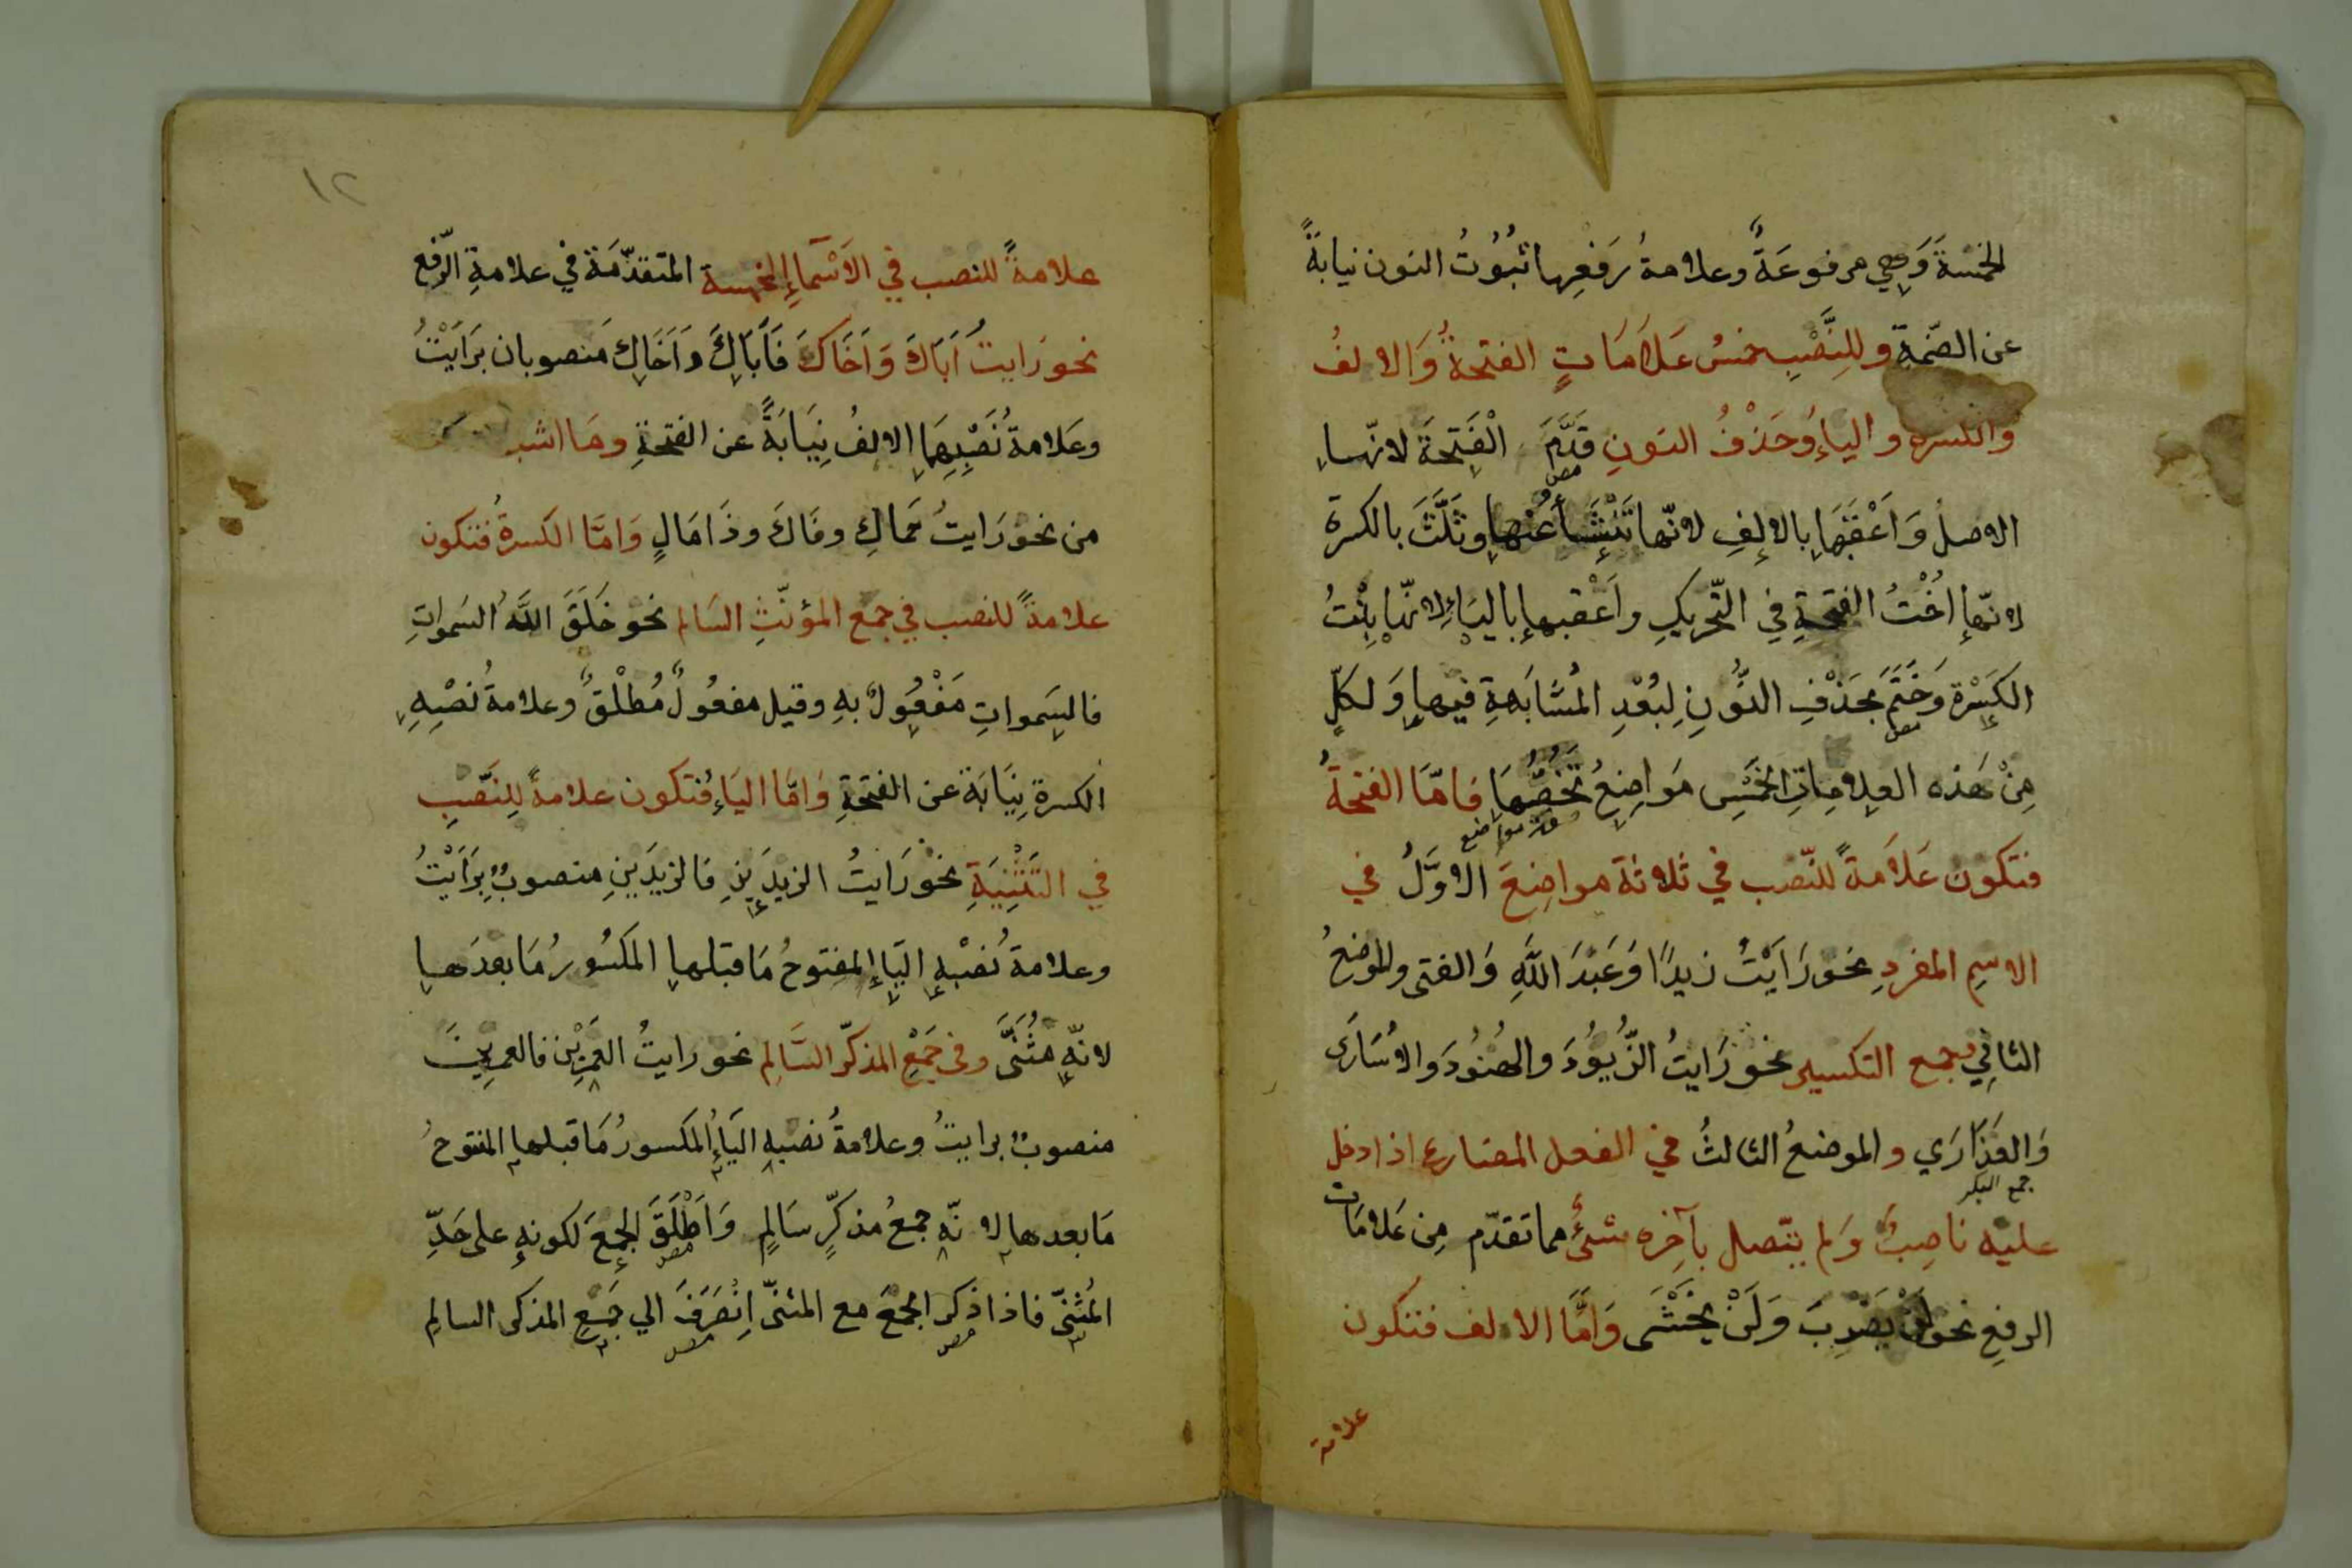 الخمسةَ وَهِي مرفوعَةٌ وعلامةُ رَفعِها ثبُوُتُ النون نيابةً
عن الضّمةِ وللِنَّصْبِ خمسُ عَلَامَاتٍ الفتحةُ وَالالفُ
والكسرة والياءُ وحَذْفُ النونِ قدَّمَ الْفَتحَةَ لانّها
الاصلُ وَاَعْقَبَهَا بالالِفِ لانّها تَنْشَأُ عَنْها وثَلَّثَ بالكسرة
لانّها اُخْتُ الفتحةِ في التّحريكِ واَعْقبها بالياءِ لانّها بِنْتُ
الكَسْرة وَخَتَمَ بحَذْفِ النُّونِ لِبُعْدِ المُشَابَهةِ فيها وَلكلٍّ
مِنْ هَذه العلاماتِ الخَمْسِ مَواضِعُ تَخُصُّهَا فَامّا الفتحةُ
هذه مواضع
فتكون عَلَامةً للنّصب في ثلاثة مواضِعَ الاوَّلُ في
الاسمِ المفردِ نحورَاَيْتُ زيدًا وَعَبْدَ اللَّهِ وَالفتى والموضعُ
الثاني جمع التكسير نحو رَايتُ الزُّيوُدَ والهُنُودَ وَالاُسَارَى
وَالعَذَارَي والموضعُ الثالثُ في الفعل المضارع اذا دخل
جمع البكر
عليه ناصِبٌ وَلم يتّصل بآخِره شئٌ مما تقدّم مِن عَلامَات
الرفعِ نحو لَنْ يَضْرِبَ وَلَنْ يَخْشَى وَاَمَّا الالف فتكون
علامة
١٢
علامةً للنصب في الاَسْمآءِ الخمسة المتقدّمَة في علامةِ الرّفع
نحو رَايتُ اَبَاكَ وَاَخَاكَ فَاَبَاكَ وَاَخَاكَ مَنصوبان برَاَيْتُ
وعَلامةُ نَصْبِهِمَا الالفُ نِيَابَةً عن الفتحةِ ومَا اشبه
من نحوُ رَايتُ حَمَاكِ وفَاكَ وذَا مَالٍ وَامَّا الكَسرةُ فتكون
علامةً للنصب في جمَع المؤنّثِ السَالم نحو خَلَقَ اللَّهُ السَمواتِ
فالسَمواتِ مَفْعُولٌ بهِ وقيل مفعُولٌ مُطلْقٌ وعلامةُ نَصْبِهِ
الكسرة نِيَابَة عن الفتحةِ وَامّا اليَاءُ فتكون علامةً لِلنَّصْبِ
في التَثْنِيَةِ نحو رَايتُ الزيدَينِ فَالزيدَينِ منصوبٌ برَاَيْتُ
وعلامة نُصْبِهِ اليَاءُ المفتوحُ مَا قبلها المَكسُورُ مَا بعدَها
لانّه مُثَنَّى وفى جَمْعِ المذكّر السَّالِم نحو رايتُ العَمْرِيْنَ فالعمرِينَ
منصوبٌ برايتُ وعلامةُ نصبهِ اليَاءُ المكسورُ مَا قبلها المفتوحُ
مَا بعدها لانّه جمعُ مذكّرٍ سَالمٍ وَاَطْلَقَ الجمعَ لكونهِ على حَدِّ
المُثَنّى فاذا ذكر الجمعَ مع المثنّى اِنْصَرَفَ الي جَمْعِ المذكر السالِم